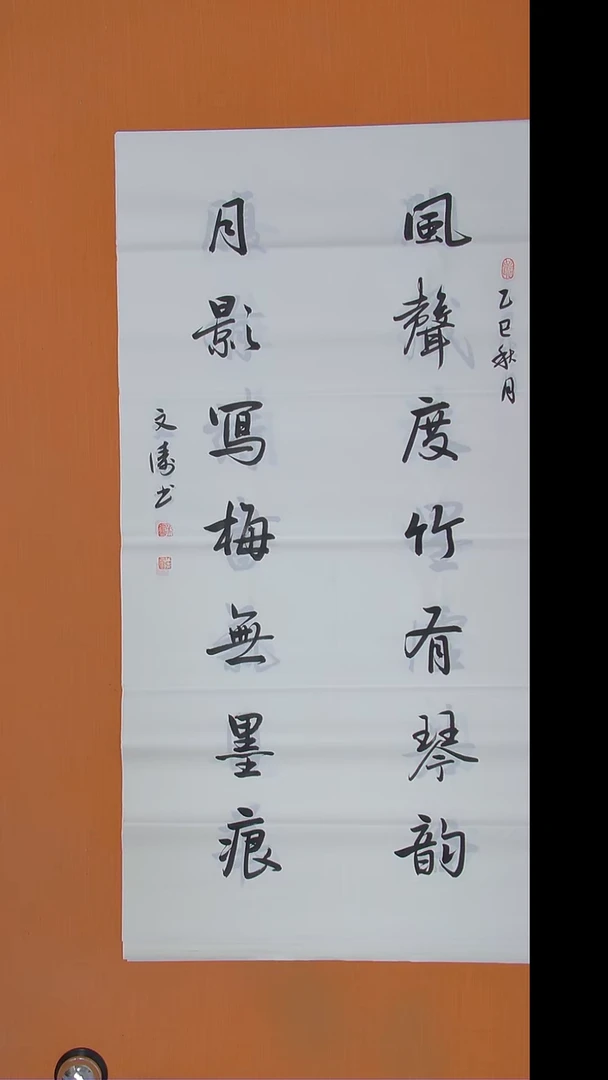 乙巳秋月
風聲度竹有琴韵
月影寫梅無墨痕
文濤书